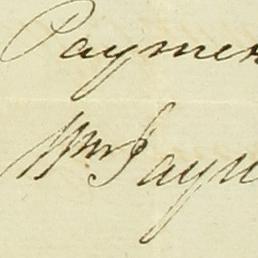 Paymen
Wm Jayn